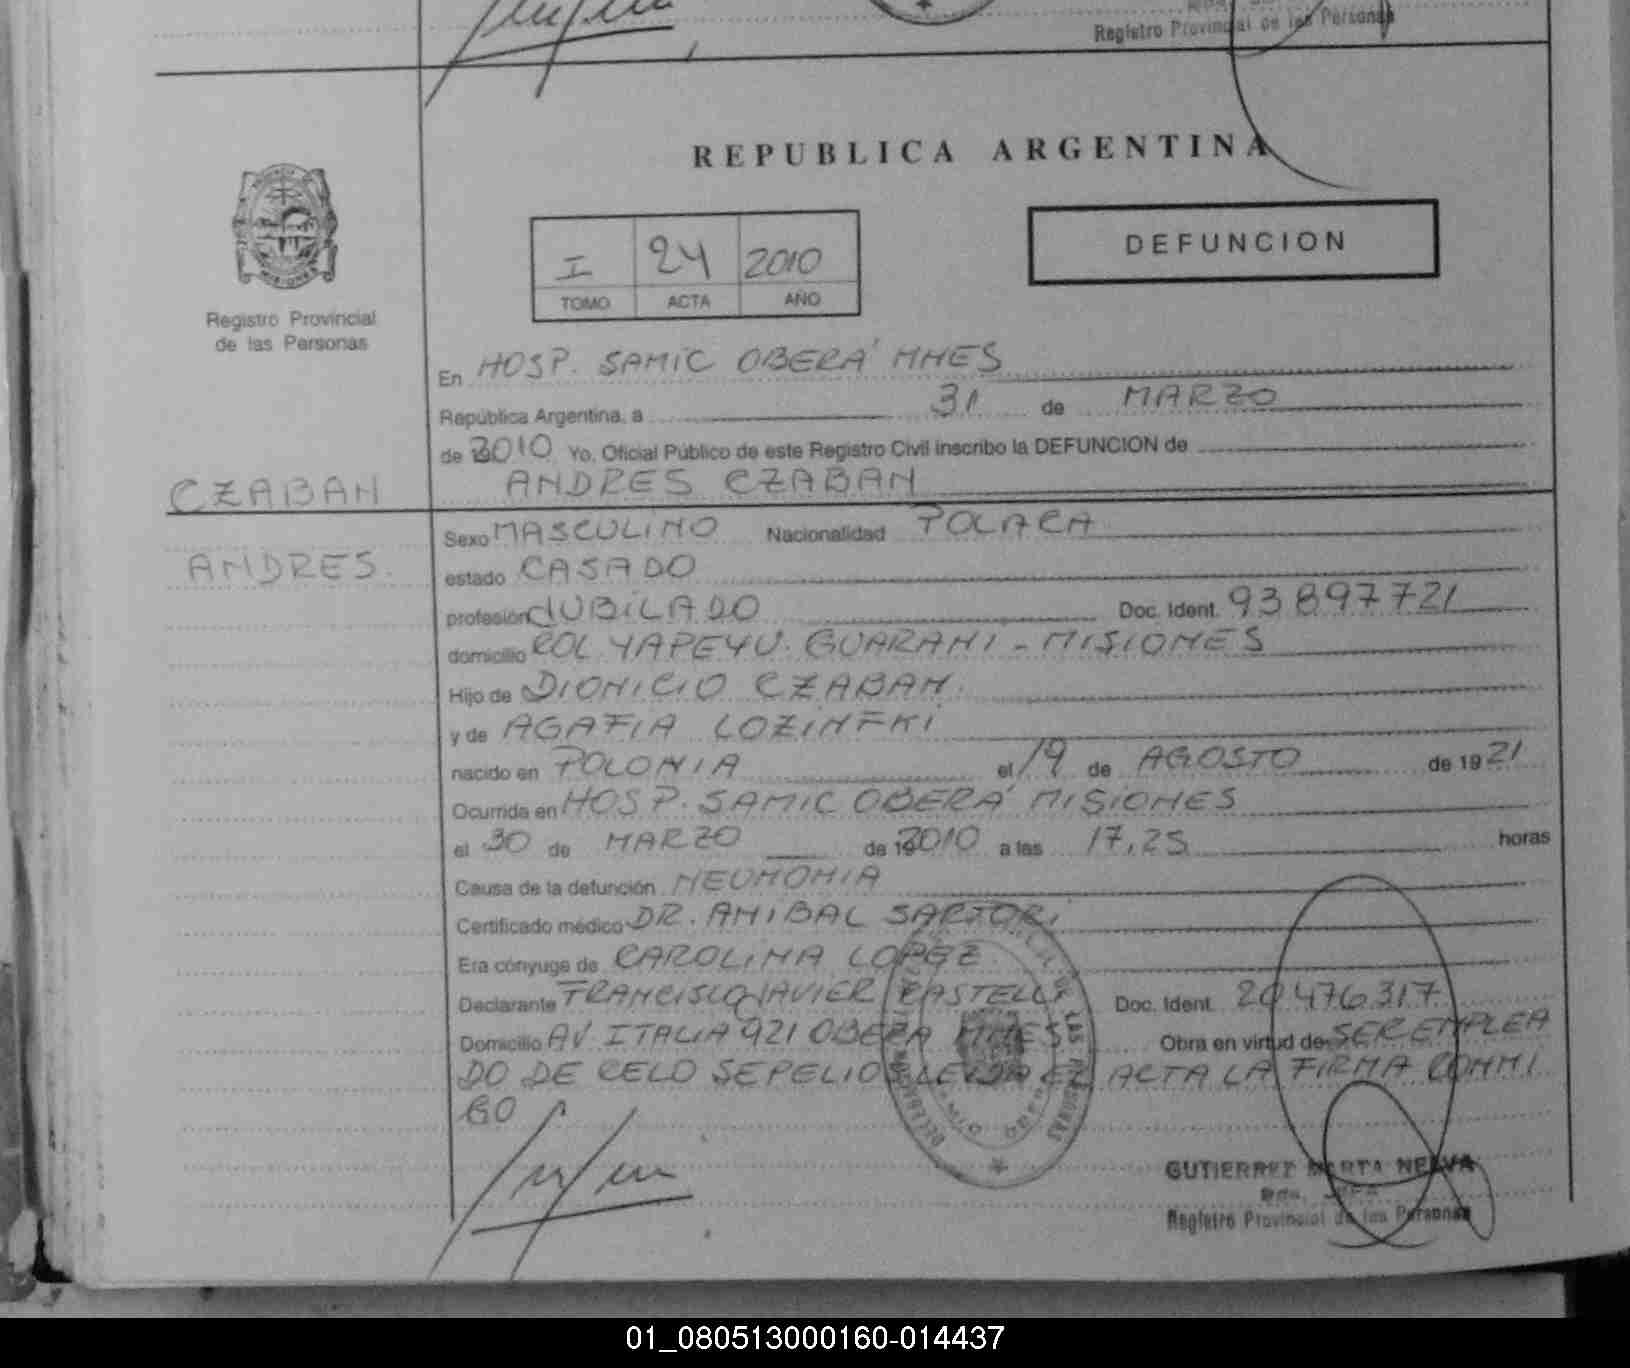 Registro Provincial de las Personas
REPUBLICA ARGENTINA
I 24 2010
TOMO ACTA AÑO
DEFUNCION
Registro Provincial
de las Personas
En HOSP. SAMIC OBERA' MNES
República Argentina, a 31 de MARZO
de 2010 Yo, Oficial Público de este Registro Civil inscribo la DEFUNCION de
CZABAN
ANDRES CZABAN
ANDRES.
Sexo MASCULINO Nacionalidad POLACA
estado CASADO
profesión JUBILADO Doc. Ident. 93897721
domicilio COL YAPEYU. GUARANI - MISIONES
Hijo de DIONICIO CZABAN.
y de AGAFIA LOZINFKI
nacido en POLONIA el 19 de AGOSTO de 1921
Ocurrida en HOSP. SAMIC OBERA' MISIONES
el 30 de MARZO de 192010 a las 17,25 horas
Causa de la defunción NEUMONIA
Certificado médico DR. ANIBAL SARTORI
Era cónyuge de CAROLINA LOPEZ
Declarante FRANCISCO JAVIER CASTELLI Doc. Ident. 20.476.317
Domicilio AV. ITALIA 921 OBERA MNES Obra en virtud de SER EMPLEA
DO DE CELO SEPELIO LEIDA EL ACTA LA FIRMA CONMI
GO
GUTIERREZ MARTA NELVA
Registro Provincial de las Personas
01_080513000160-014437